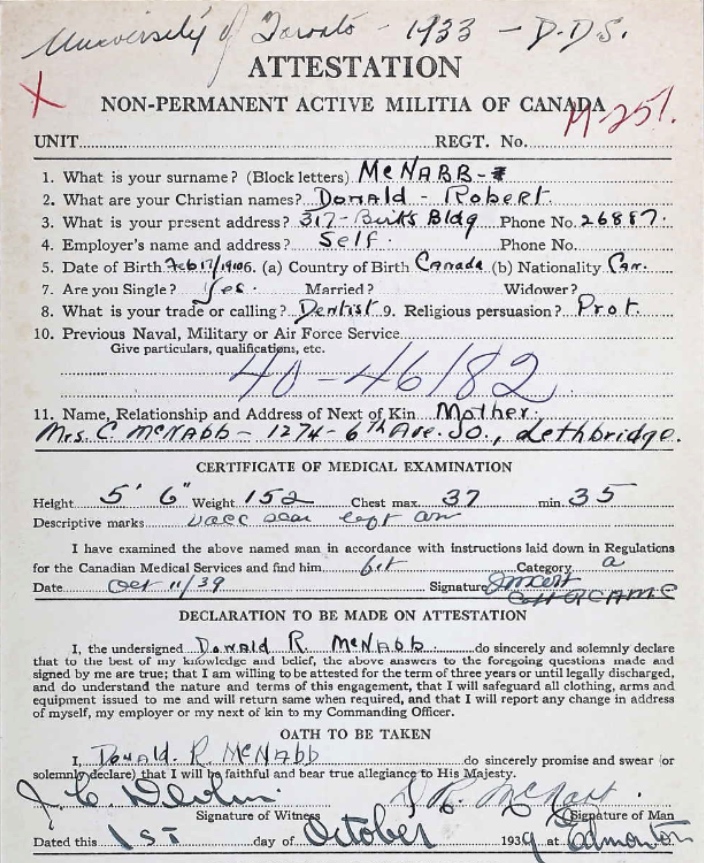 University of Toronto - 1933 - D.D.S.
ATTESTATION
X
NON-PERMANENT ACTIVE MILITIA OF CANADA
M-251.
UNIT REGT. No.
1. What is your surname? (Block letters) McNABB
2. What are your Christian names? Donald - Robert.
3. What is your present address? 317- Birks Bldg Phone No. 26887.
4. Employer's name and address? Self. Phone No.
5. Date of Birth Feb 17/1906. (a) Country of Birth Canada (b) Nationality Can.
7. Are you Single? Yes. Married? Widower?
8. What is your trade or calling? Dentist 9. Religious persuasion? Prot.
10. Previous Naval, Military or Air Force Service
Give particulars, qualifications, etc.
40-46/82
11. Name, Relationship and Address of Next of Kin Mother.
Mrs. C. McNabb - 1274 - 6th Ave. So., Lethbridge.
CERTIFICATE OF MEDICAL EXAMINATION
Height 5' 6" Weight 152 Chest max. 37 min. 35
Descriptive marks vacc scar left arm
I have examined the above named man in accordance with instructions laid down in Regulations
for the Canadian Medical Services and find him fit Category a
Date Oct 11/39 Signature
RCAMC
DECLARATION TO BE MADE ON ATTESTATION
I, the undersigned Donald R. McNabb do sincerely and solemnly declare
that to the best of my knowledge and belief, the above answers to the foregoing questions made and
signed by me are true; that I am willing to be attested for the term of three years or until legally discharged,
and do understand the nature and terms of this engagement, that I will safeguard all clothing, arms and
equipment issued to me and will return same when required, and that I will report any change in address
of myself, my employer or my next of kin to my Commanding Officer.
OATH TO BE TAKEN
I, Donald. R McNabb do sincerely promise and swear (or
solemnly declare) that I will be faithful and bear true allegiance to His Majesty.
J. C. Devlin. D. R. McNabb.
Signature of Witness Signature of Man
Dated this 1st day of October 1939 at Edmonton